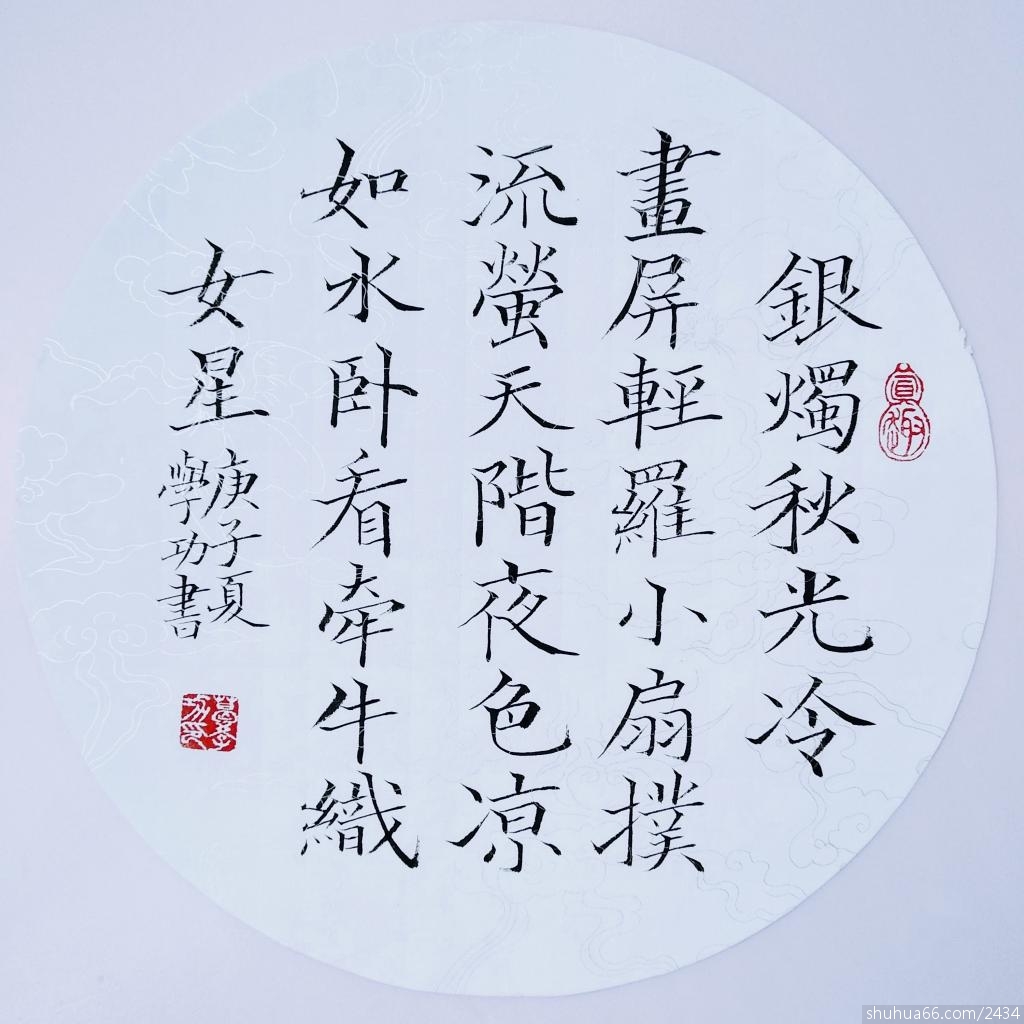 銀燭秋光冷
畫屏輕羅小扇撲
流螢天階夜色凉
如水卧看牽牛織
女星
庚子夏
學功書
真趣
shuhua66.com/2434